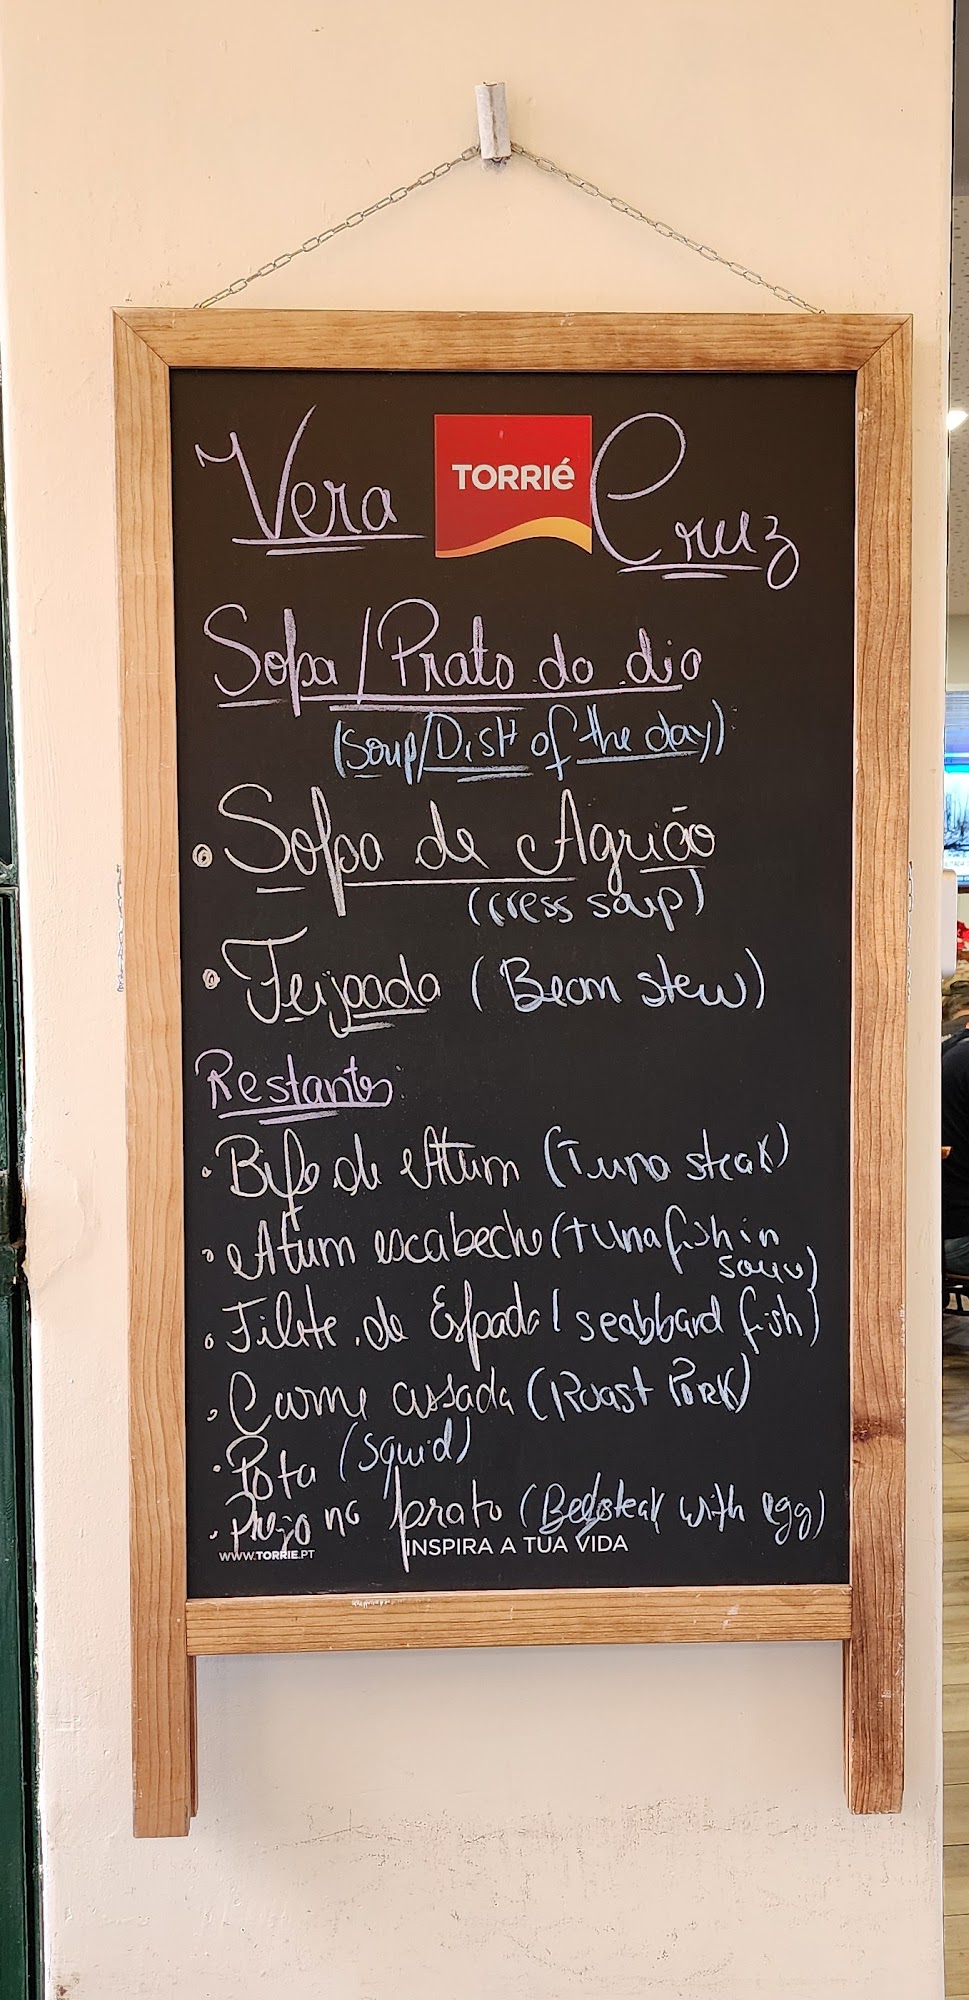 Vera TORRIÉ Cruz
Sopa/Prato do dia
(Soup/Dish of the day)
Sopa de Agrião
(cress soup)
Feijoada (Bean stew)
Restantes:
Bife de Atum (Tuna steak)
Atum escabeche (tuna fish in
sauce)
Filete de Espada (seabbard fish)
Carne assada (Roast Pork)
Pota (squid)
Prego no prato (Beefsteak with egg)
WWW.TORRIE.PT INSPIRA A TUA VIDA